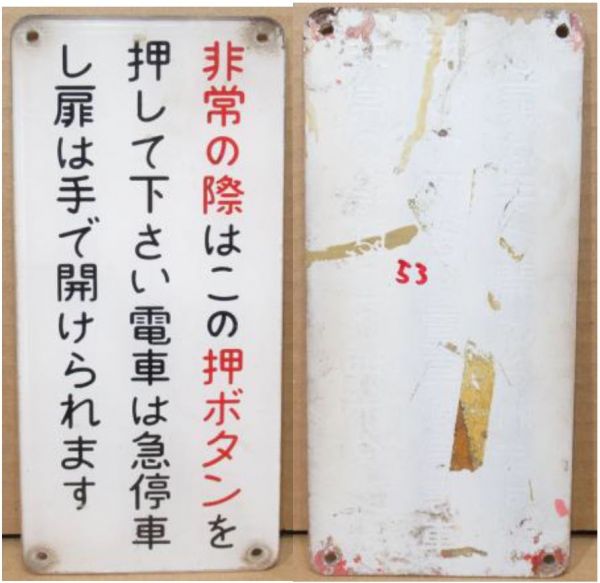 非常の際はこの押ボタンを
押して下さい電車は急停車
し扉は手で開けられます
53